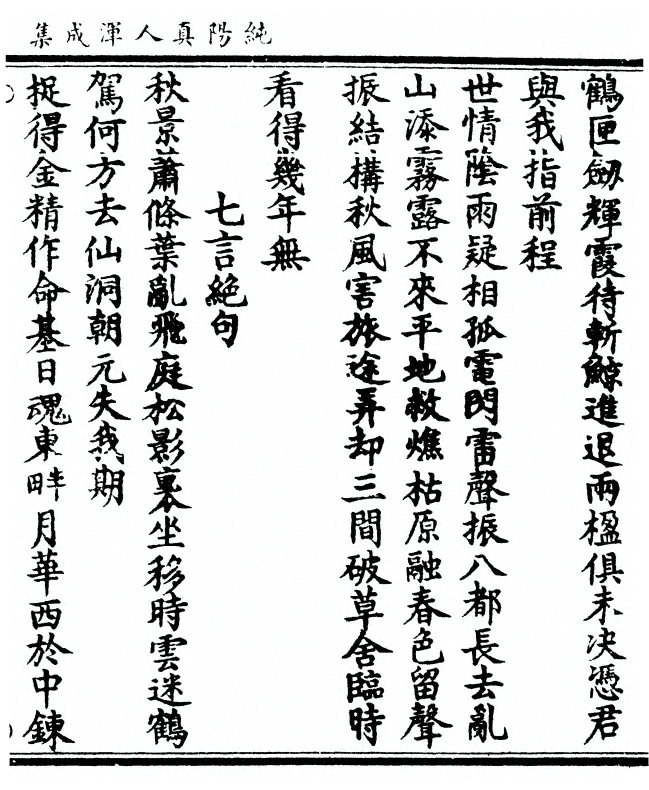 純陽真人渾成集
鶴匣劒輝霞待斬鯨進退兩楹俱未决憑君
與我指前程
世情陰雨疑相孤電閃雷聲振八都長去亂
山添霧露不來平地救燋枯原融春色留聲
振結搆秋風害旅途弄却三間破草舍臨時
看得幾年無
七言絕句
秋景蕭條葉亂飛庭松影裏坐移時雲迷鶴
駕何方去仙洞朝元失我期
捉得金精作命基日魂東畔月華西於中鍊